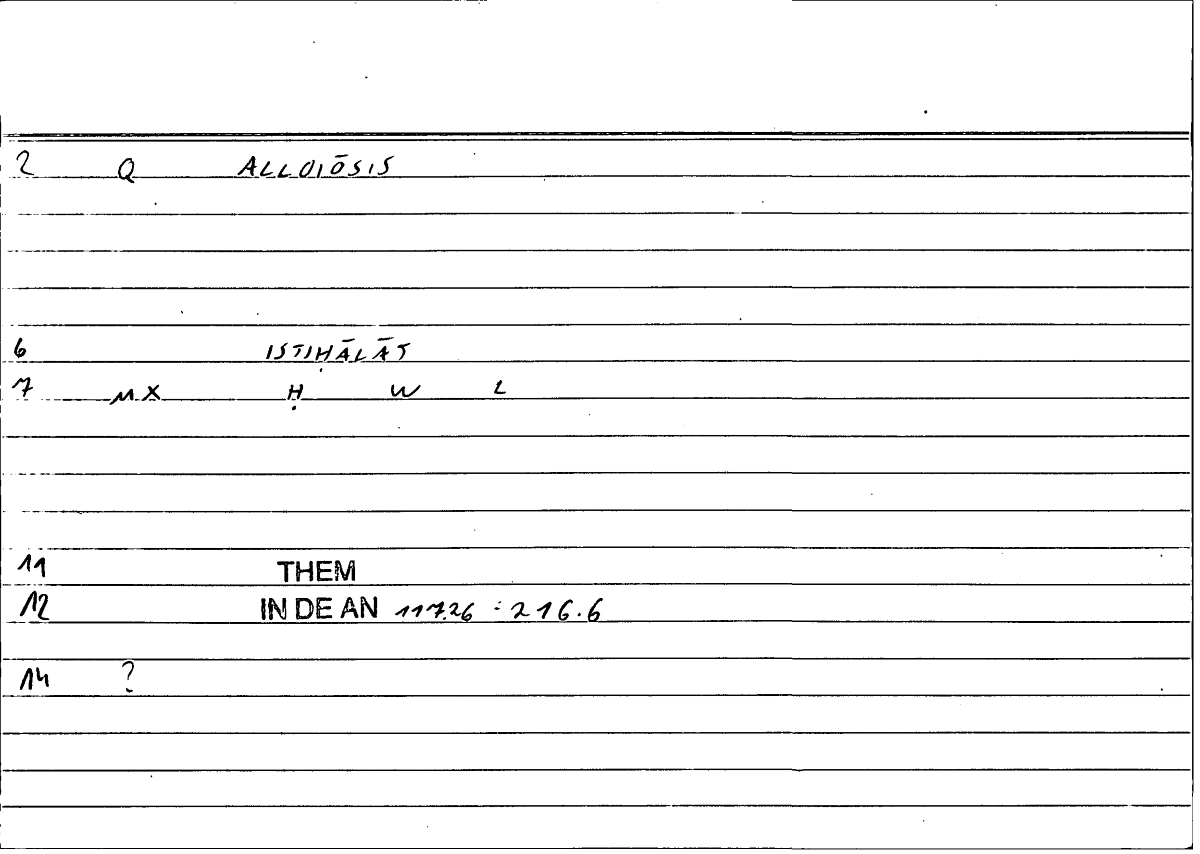 2 Q ALLOIŌSIS
6 ISTIḤĀLĀT
7 MX Ḥ W L
11 THEM
12 IN DE AN 117.26 : 216.6
14 ?